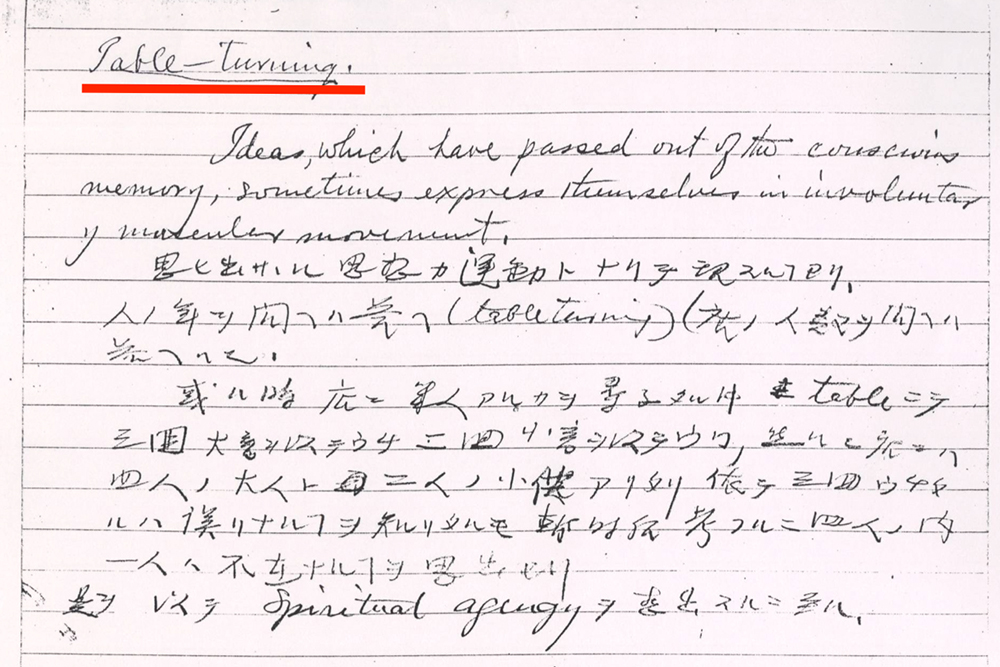 Table-turning.
Ideas, which have passed out of the conscious
memory, sometimes express themselves in involuntar
y muscular movement.
思ヒ出サヾル思想カ運動トナリテ現スルヿアリ,
人ノ年ヲ問ヘハ答ヘ (table turning) (座ノ人数ヲ問ヘハ
答ヘルと.
或ル時 座ニ幾人アルカヲ尋子タル時 table ニテ
三回大音ヲ以テウチ 二回小音ヲ以テウウ, 然ルニ座ニハ
四人ノ大人ト 二人ノ小供アリタリ 依テ三回ウチタ
ルハ誤リナルヿヲ知リタルモ 暫時後考フルニ四人ノ内
一人ハ不在ナルヿヲ思出セリ
是ヲ以テ Spiritual agency ヲ スルニ至ル.